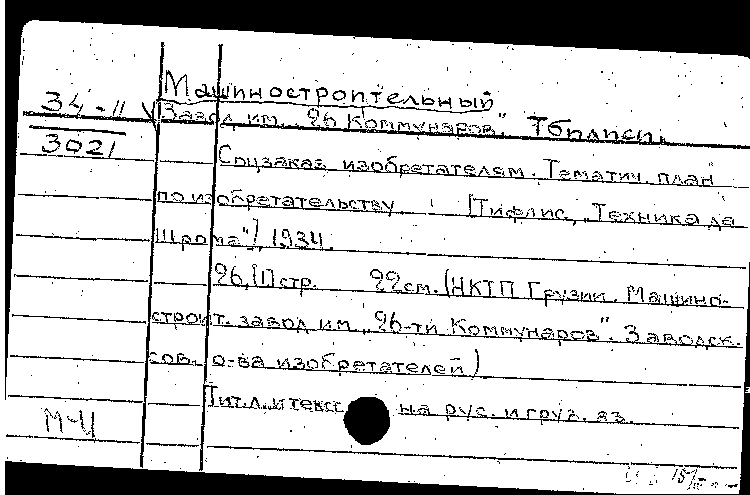 Машиностроительный
34-11 V Завод им. "26 Коммунаров" Тбилиси.
3021
Соцзаказ изобретателям. Тематич. план
по изобретательству. [Тифлис, "Техника да
Шрома"], 1934.
26, [1] стр. 22 см. (НКТП Грузии. Машино-
строит. завод им. "26-ти Коммунаров". Заводск.
сов. о-ва изобретателей)
Тит. л. и текст на рус. и груз. яз.
М-Ц